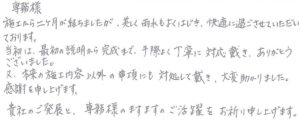 専務様
施工から二ヶ月が経ちましたが、美しく雨水もよくはじき、快適に過ごさせていただい
ております。
当初は、最初の説明から完成まで、手際よく丁寧に対応戴き、ありがとう
ございました。
又、本来の施工内容以外の事項にも対処して戴き、大変助かりました。
感謝を申し上げます。
貴社のご発展と、専務様のますますのご活躍をお祈り申し上げます。